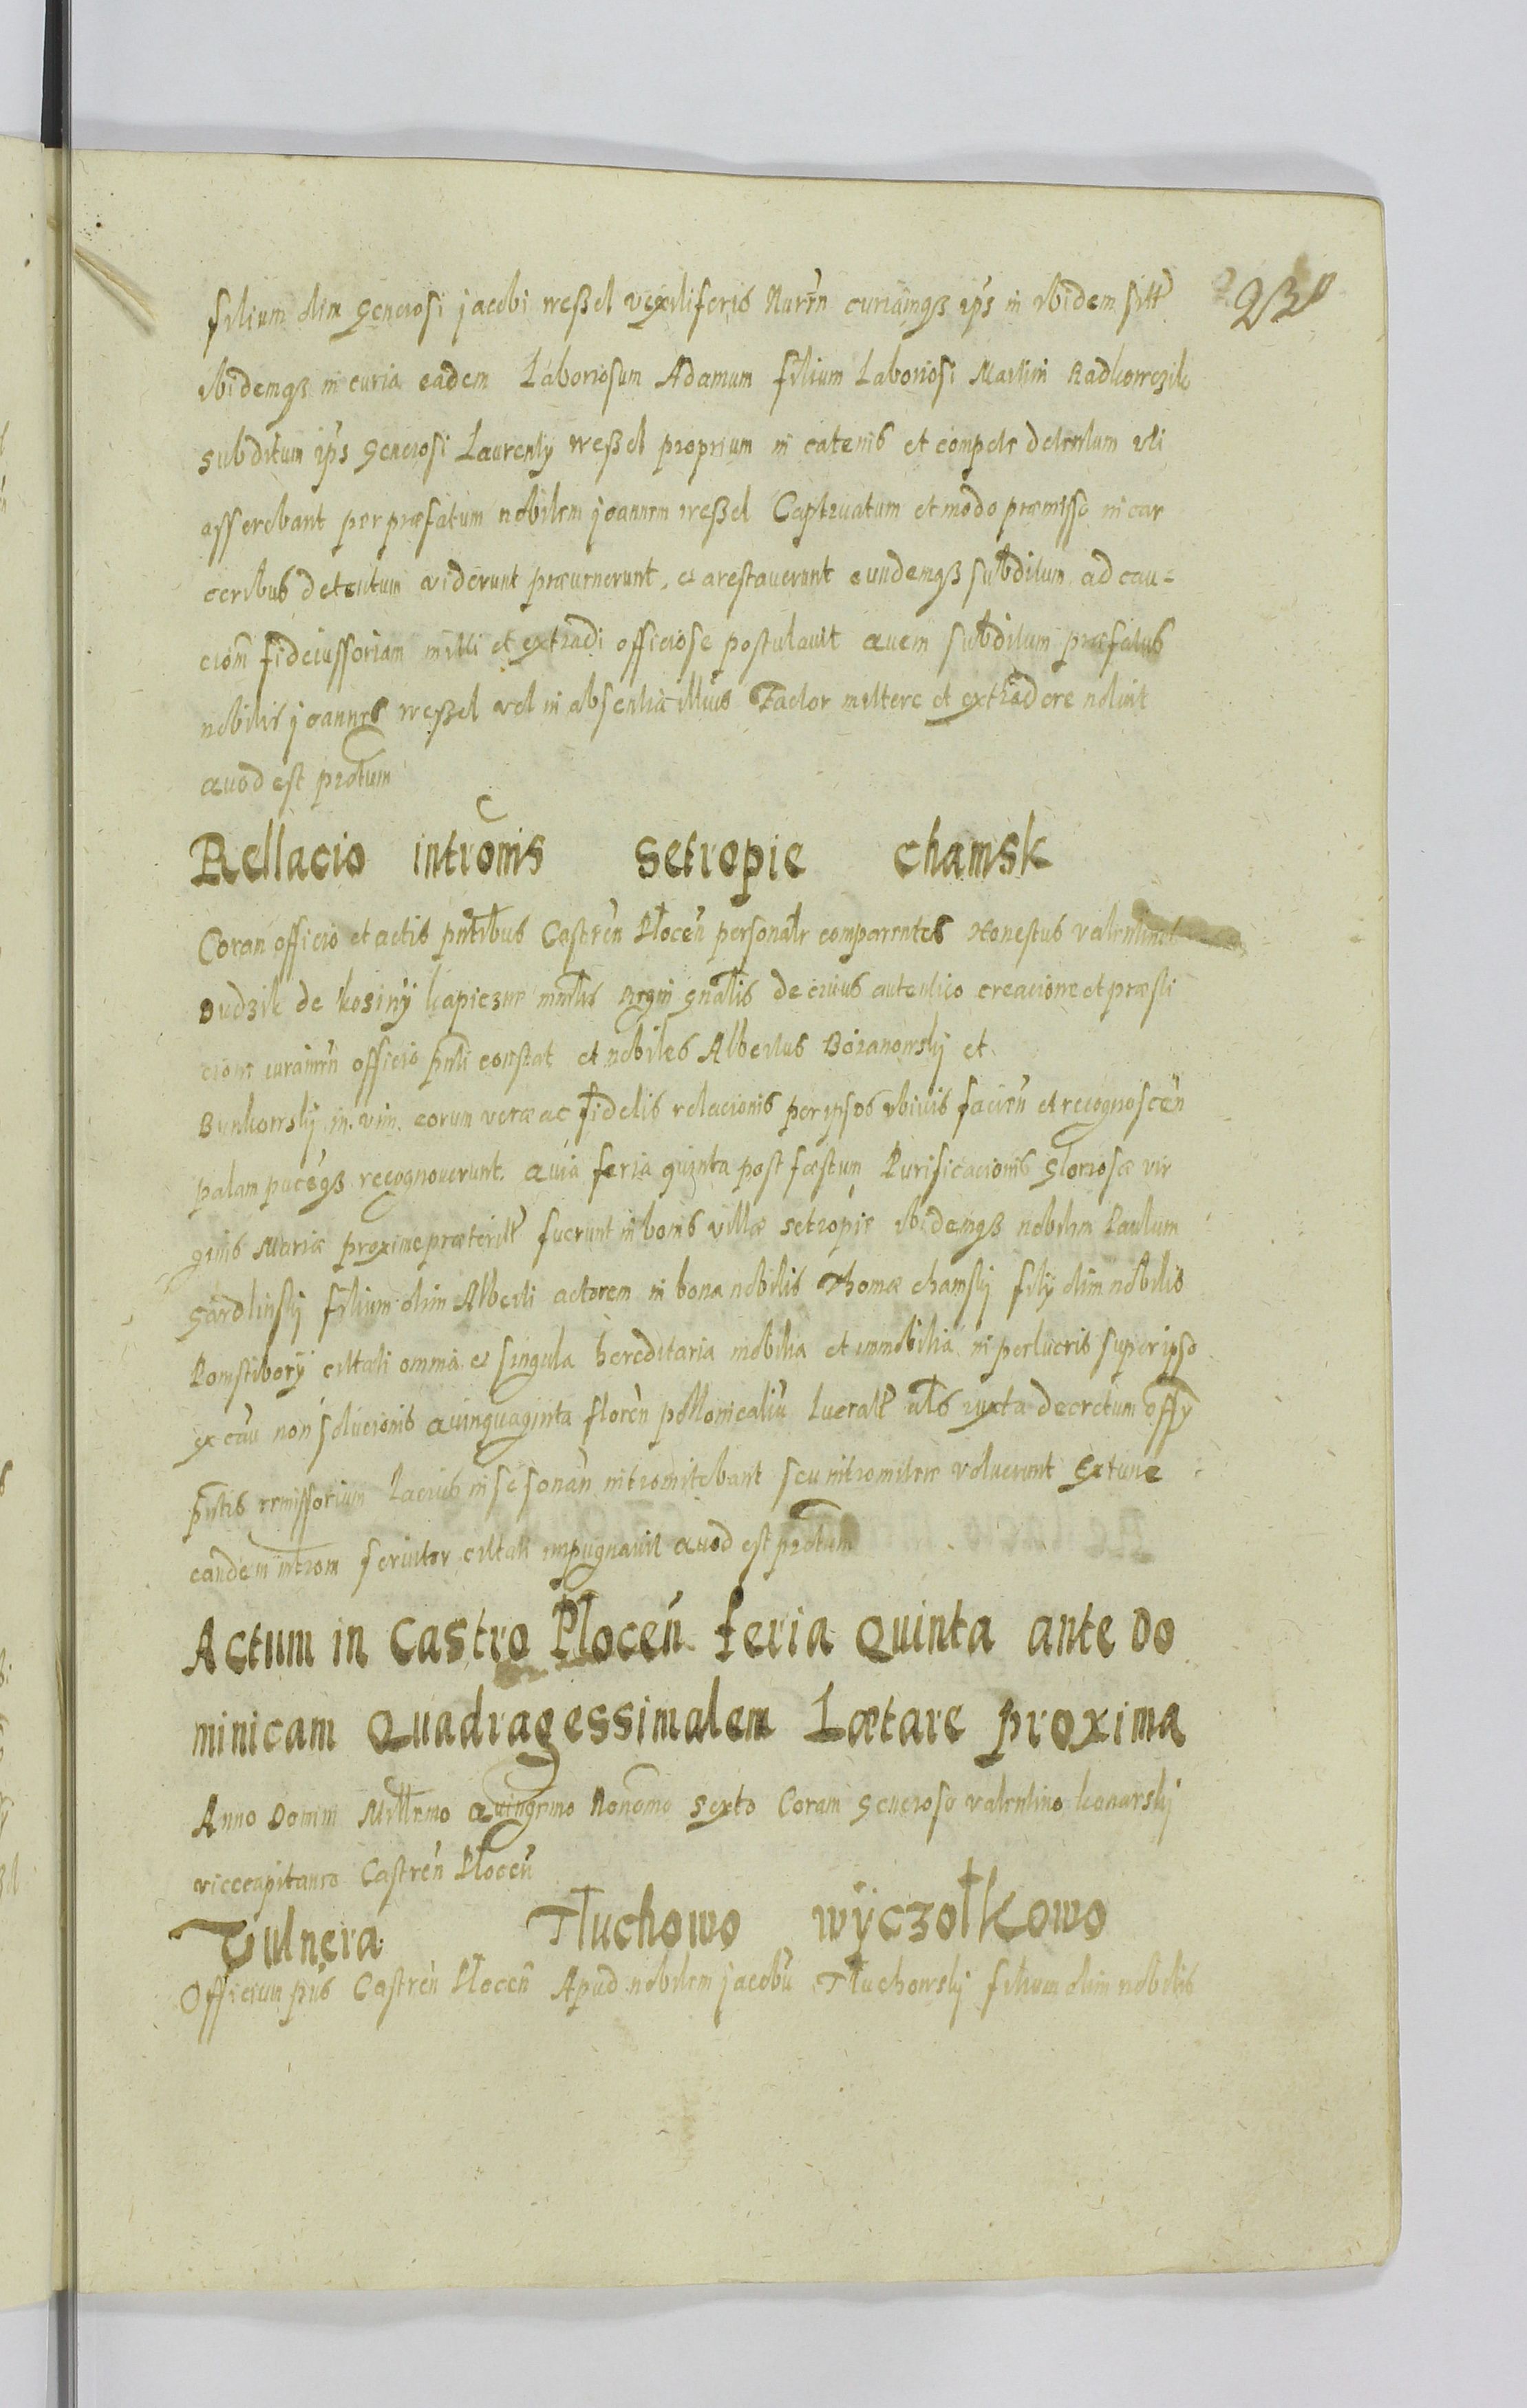 230
filium olim Generosi jacobi weßel vexiliferis Nuren curiamqß ips in ibidem sitt
ibidemqß in curia eadem Laboriosum Adamum filium Laboriosi Martini Radkowczik
subditum ips Generosi Laurenty weßel proprium in catenis et compede detentum uti
asserebant per præfatum nobilem joannem weßel Captivatum et modo præmisso in car
ceribus detentum viderunt et arestaverunt eundemqß subditum ad cau=
ciom fideiussoriam mitti et extradi officiose postulavit quem subditum præfatus
nobilis joannes weßel vel in absentia illius Factor mittere et extradere noluit
quod est protum
Rellacio introms Setropie chamsk
Coram officio et actis pntibus Castren Plocen personalr comparentes Honestus valentinus
Dudzik de kosiny kapiczne mnlis Regni gnalis de cuius autentico creacione et præsti
cione juramen officio pnti constat et nobiles Albertus Bozanowsky et
Bunkowsky in vim eorum veræ ac fidelis relacionis per ipsos ibivis facien et recognoscen
palam puceqß recognoverunt quia feria quinta post fæstum Purificacionis Gloriosæ vir
ginis Mariæ proxime præteritt fuerunt in bonis villæ setropie ibidemqß nobilem Paulum
Gardlinsky filium olim Alberti actorem in bona nobilis Thomæ chamsky fily olim nobilis
Pomstibory cittati omnia et singula hereditaria mobilia et immobilia in perlucris super ipso
ex cau non solucionis quinquaginta floren pollonicaliu lucratt als iuxta decretum offy
pntis remissorium Lacius in se sonan intromitebant seu intromitere voluerunt Extunc
eandem introm servitor cittati impugnavit quod est protum
Actum in Castro Plocen feria Quinta ante Do
minicam Quadragessimalem Lætare proxima
Anno Domini Millemo quingemo Nonomo sexto Coram Generoso valentino konarsky
vicecapitaneo Castren Plocen
Vulnera Tłuchowo wÿczołkowo
Officium pns Castren Plocen Apud nobilem jacobu Tłuchowsky filium olim nobilis